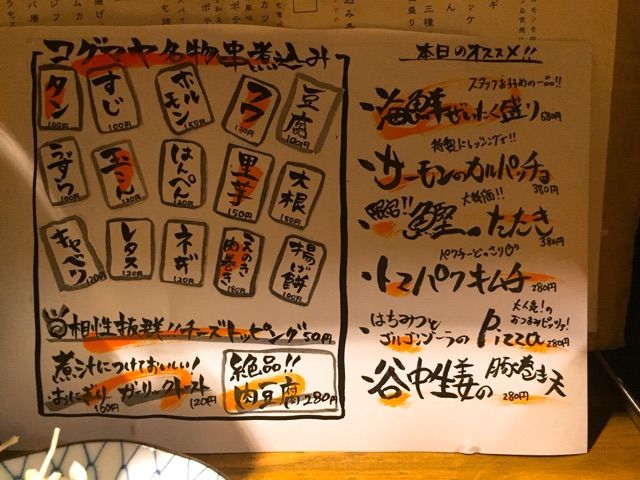 コグマヤ名物串煮込み
タン 100円
すじ 100円
ホルモン 150円
フワ 120円
豆腐 100円
うずら 100円
玉こん 120円
はんぺん 120円
里芋 150円
大根 150円
キャベツ 120円
レタス 120円
ネギ 120円
えのき肉巻き 180円
揚げ餅 100円
相性抜群!!チーズトッピング50円
煮汁につけておいしい!
おにぎり 160円 ガーリックトースト 120円
絶品!!
肉豆腐280円
本日のオススメ!!
スタッフおすすめの一品!!
海鮮ぜいたく盛り 580円
特製ドレッシングで!!
サーモンのカルパッチョ 380円
大特価!!
鰹のたたき 380円
パクチーどっさり
トマパクキムチ 280円
大人気!のおつまみピッツァ!
はちみつとゴルゴンゾーラのPizza 280円
谷中生姜の豚巻き天 280円